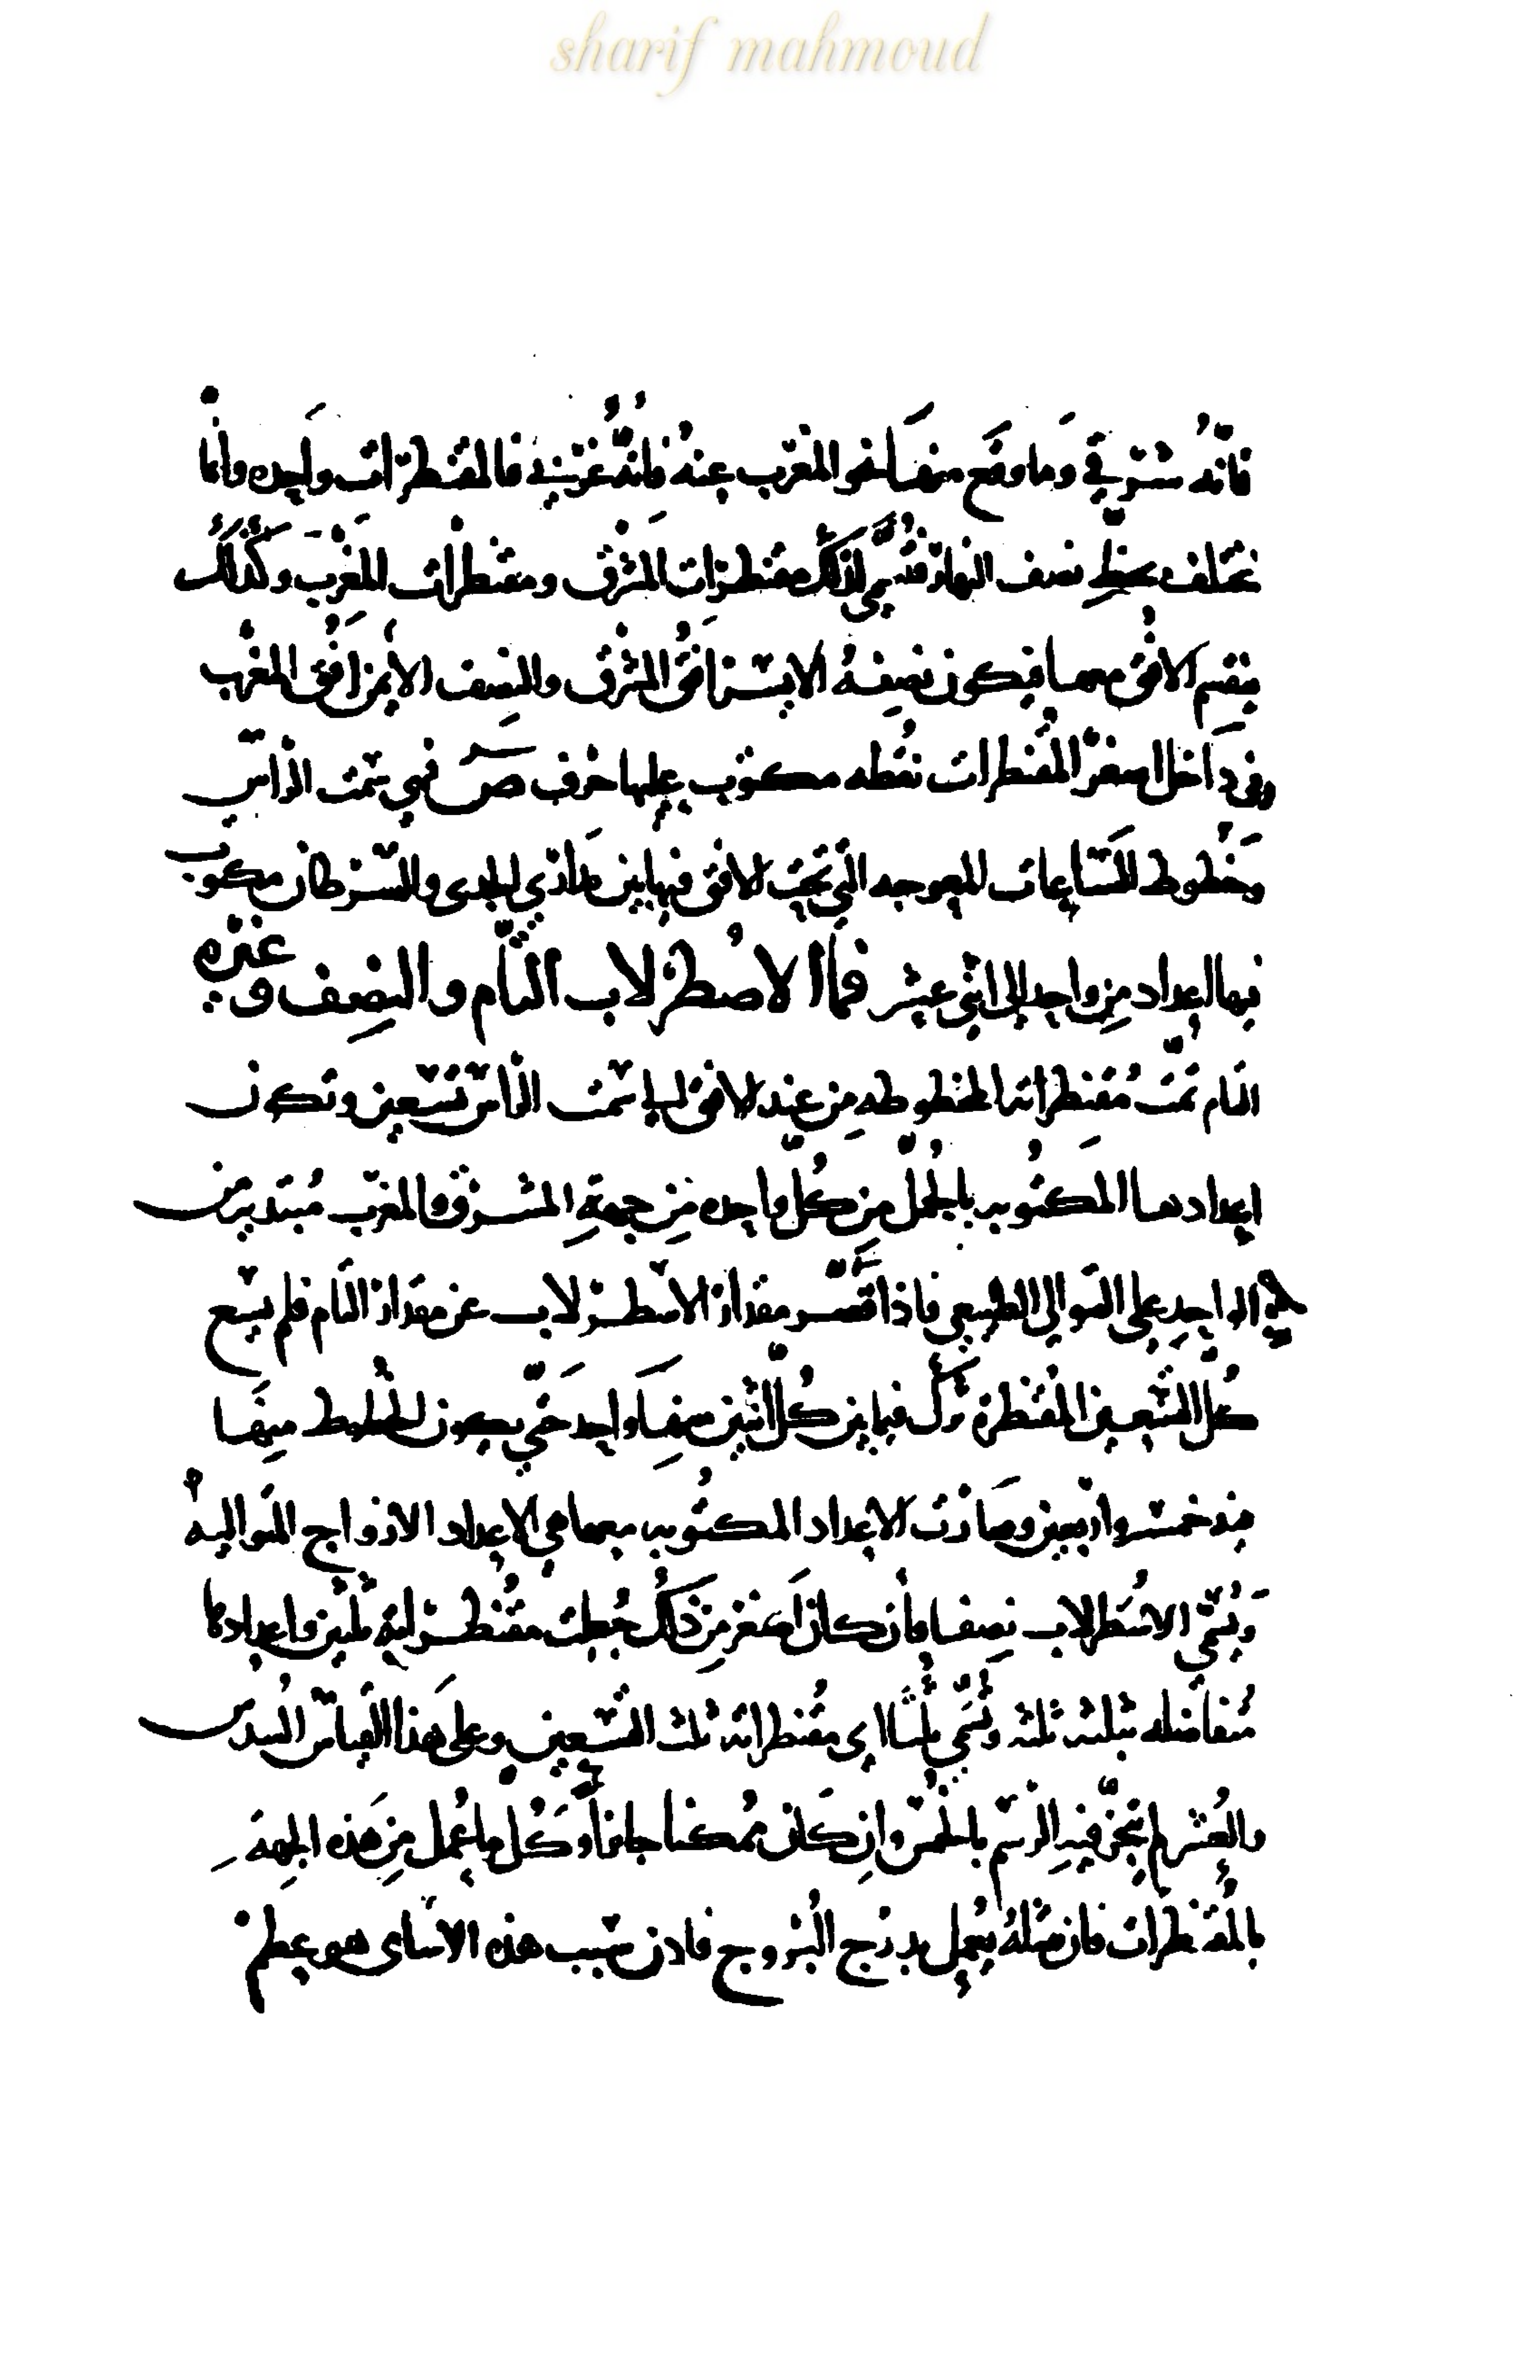 sharif mahmoud
فانّهُ شرقي وَما وقع منها نحو المغرب عنهُ فانّهُ غربي فالمقنطرات واحده وانما
تختلف بخطِ نصف النهار فتُسمّى لذلك مقنطرات المشرق ومقنطرات للمغرب وكذلك
ينقسم الافق معها فيكون نصفهُ الايسر افق المشرق والنصف الايمن افُق المغرب
وفي دَاخل اصغر المقنطرات نقطه مكتوب عليها حرف صَ فهي سمت الراس
وخطوط للساعات المعوجه التي تحت الافق فيما بين مدارَي الجدى والسرطان مكتوب
فيها اعداد مِن واحد الى اثني عشر فامّا الاصُطرلاب التام والنصِف وغيره
التام تمّت مُقنطراته المخطوطه مِن عند الافق الى سمت الراس تسعين وتكون
اعدادها المكتُوبه بالجُمل مِن كل واحده مِن جهةِ المشرق والمغرب مُبتدية من
الواحدِ على التوالي الطبيعي فاذا قصَر مقدار الاسطرلاب عن مقدار التام فلم يسع
كُلّ التسعين المُقنطرة تركَ فيما بين كُلّ اثنين منها واحد حَتّى يكون المخطط منها
خمسه واربعين وصَارت الاعداد المكتُوبه معها هي الاعداد الازواج المتواليهُ
وَيُسمّى الاسُطرلاب نِصفا فان كان اَصغر مِن ذَلكُ جُعلت مقُنطراته ثلثين واعدادها
مُتفاضله بثلثه ثلثه وتُسَمّى ثلثا اى مقُنطراته ثلث التسعين وعلى هَذا القياس السُدس
والعُشر لم يَجز فيهِ الرسم بالخُمس وانِ كاَن مُمكنا جايزا وكَُل ما عُمل مِن هَذه الجهةِ
بالمُقنطرات فان مثلهُ يعُمل بدرُج البُروج فاذن سبب هذه الاسامى هو عظم